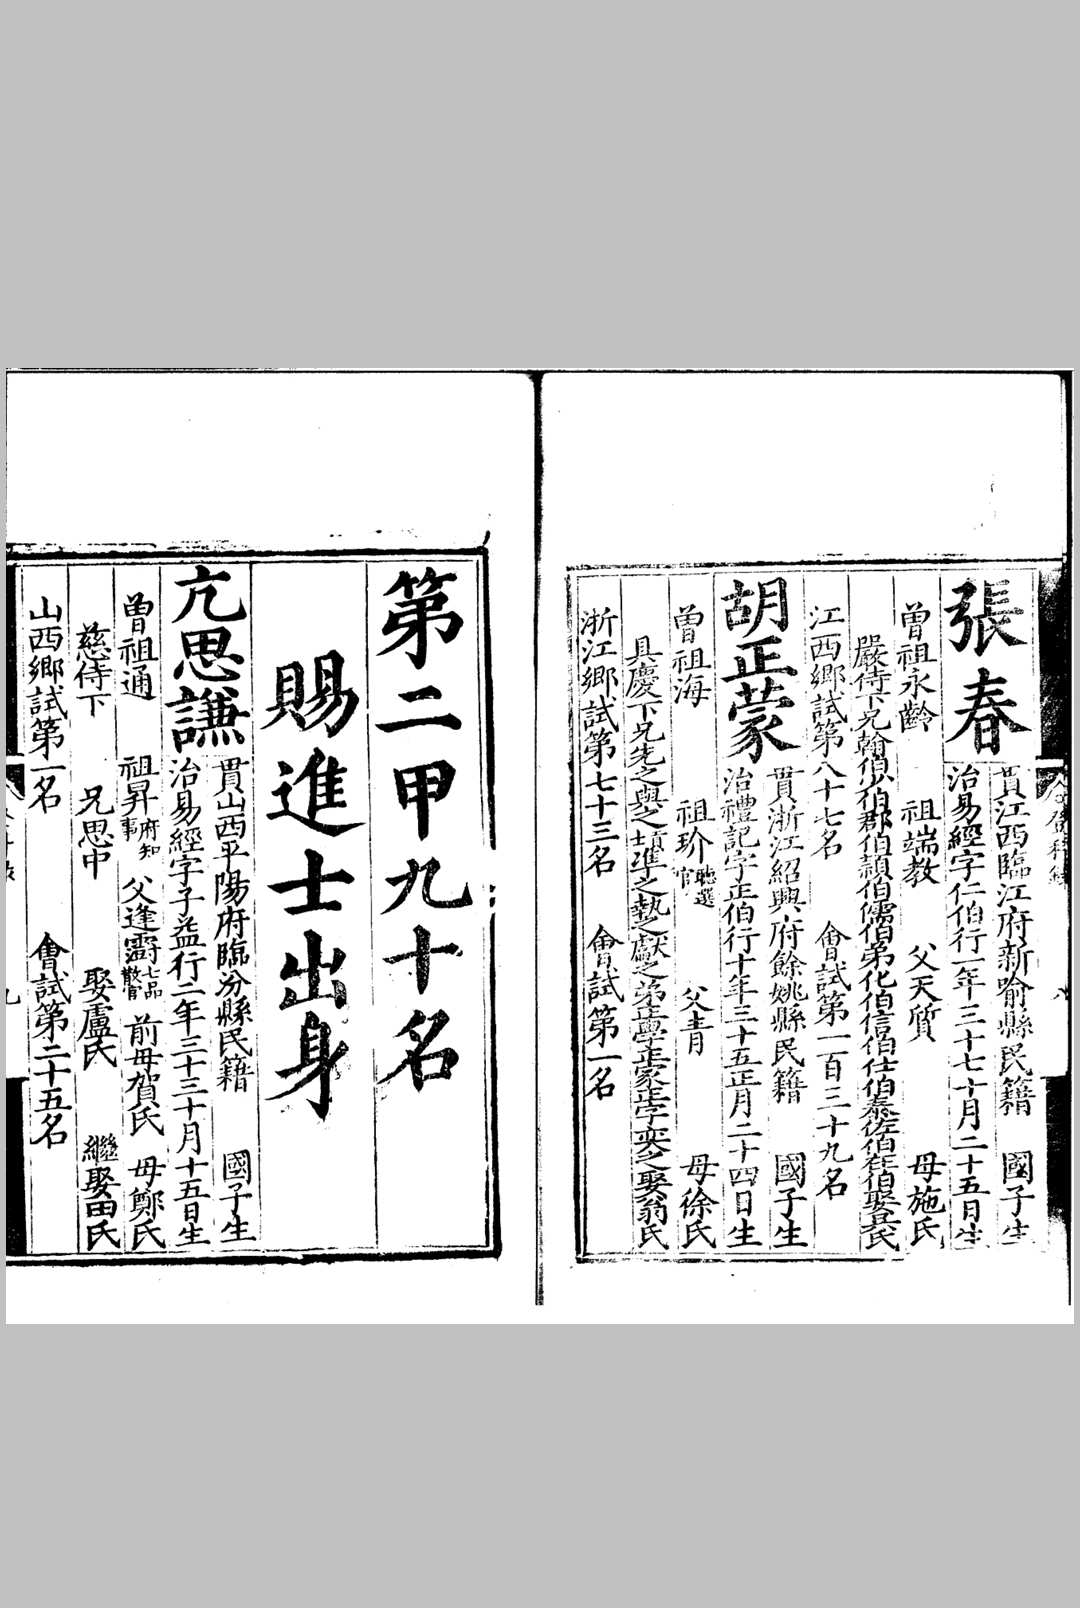 張春
貫江西臨江府新喻縣民籍 國子生
治易經字仁伯行一年三十七十月二十五日生
曾祖永齡 祖端教 父天質 母施氏
嚴侍下兄翰伯 伯郡伯頴伯儒伯弟化伯信伯仕伯泰伯佐伯在伯娶 氏
江西鄉試第八十七名 會試第一百三十九名
胡正蒙
貫浙江紹興府餘姚縣民籍 國子生
治禮記字正伯行十年三十五正月二十四日生
曾祖海 祖玠聽選官 父青 母徐氏
具慶下兄先之與之 準之執之獻之弟正學正蒙正字 之娶翁氏
浙江鄉試第七十三名 會試第一名
第二甲九十名
賜進士出身
亢思謙
貫山西平陽府臨汾縣民籍 國子生
治易經字子益行二年三十三十月十五日生
曾祖通 祖昇府知事 父逢霨七品散官 前母賀氏 母鄭氏
慈侍下 兄思中 娶盧氏 繼娶田氏
山西鄉試第一名 會試第二十五名
九